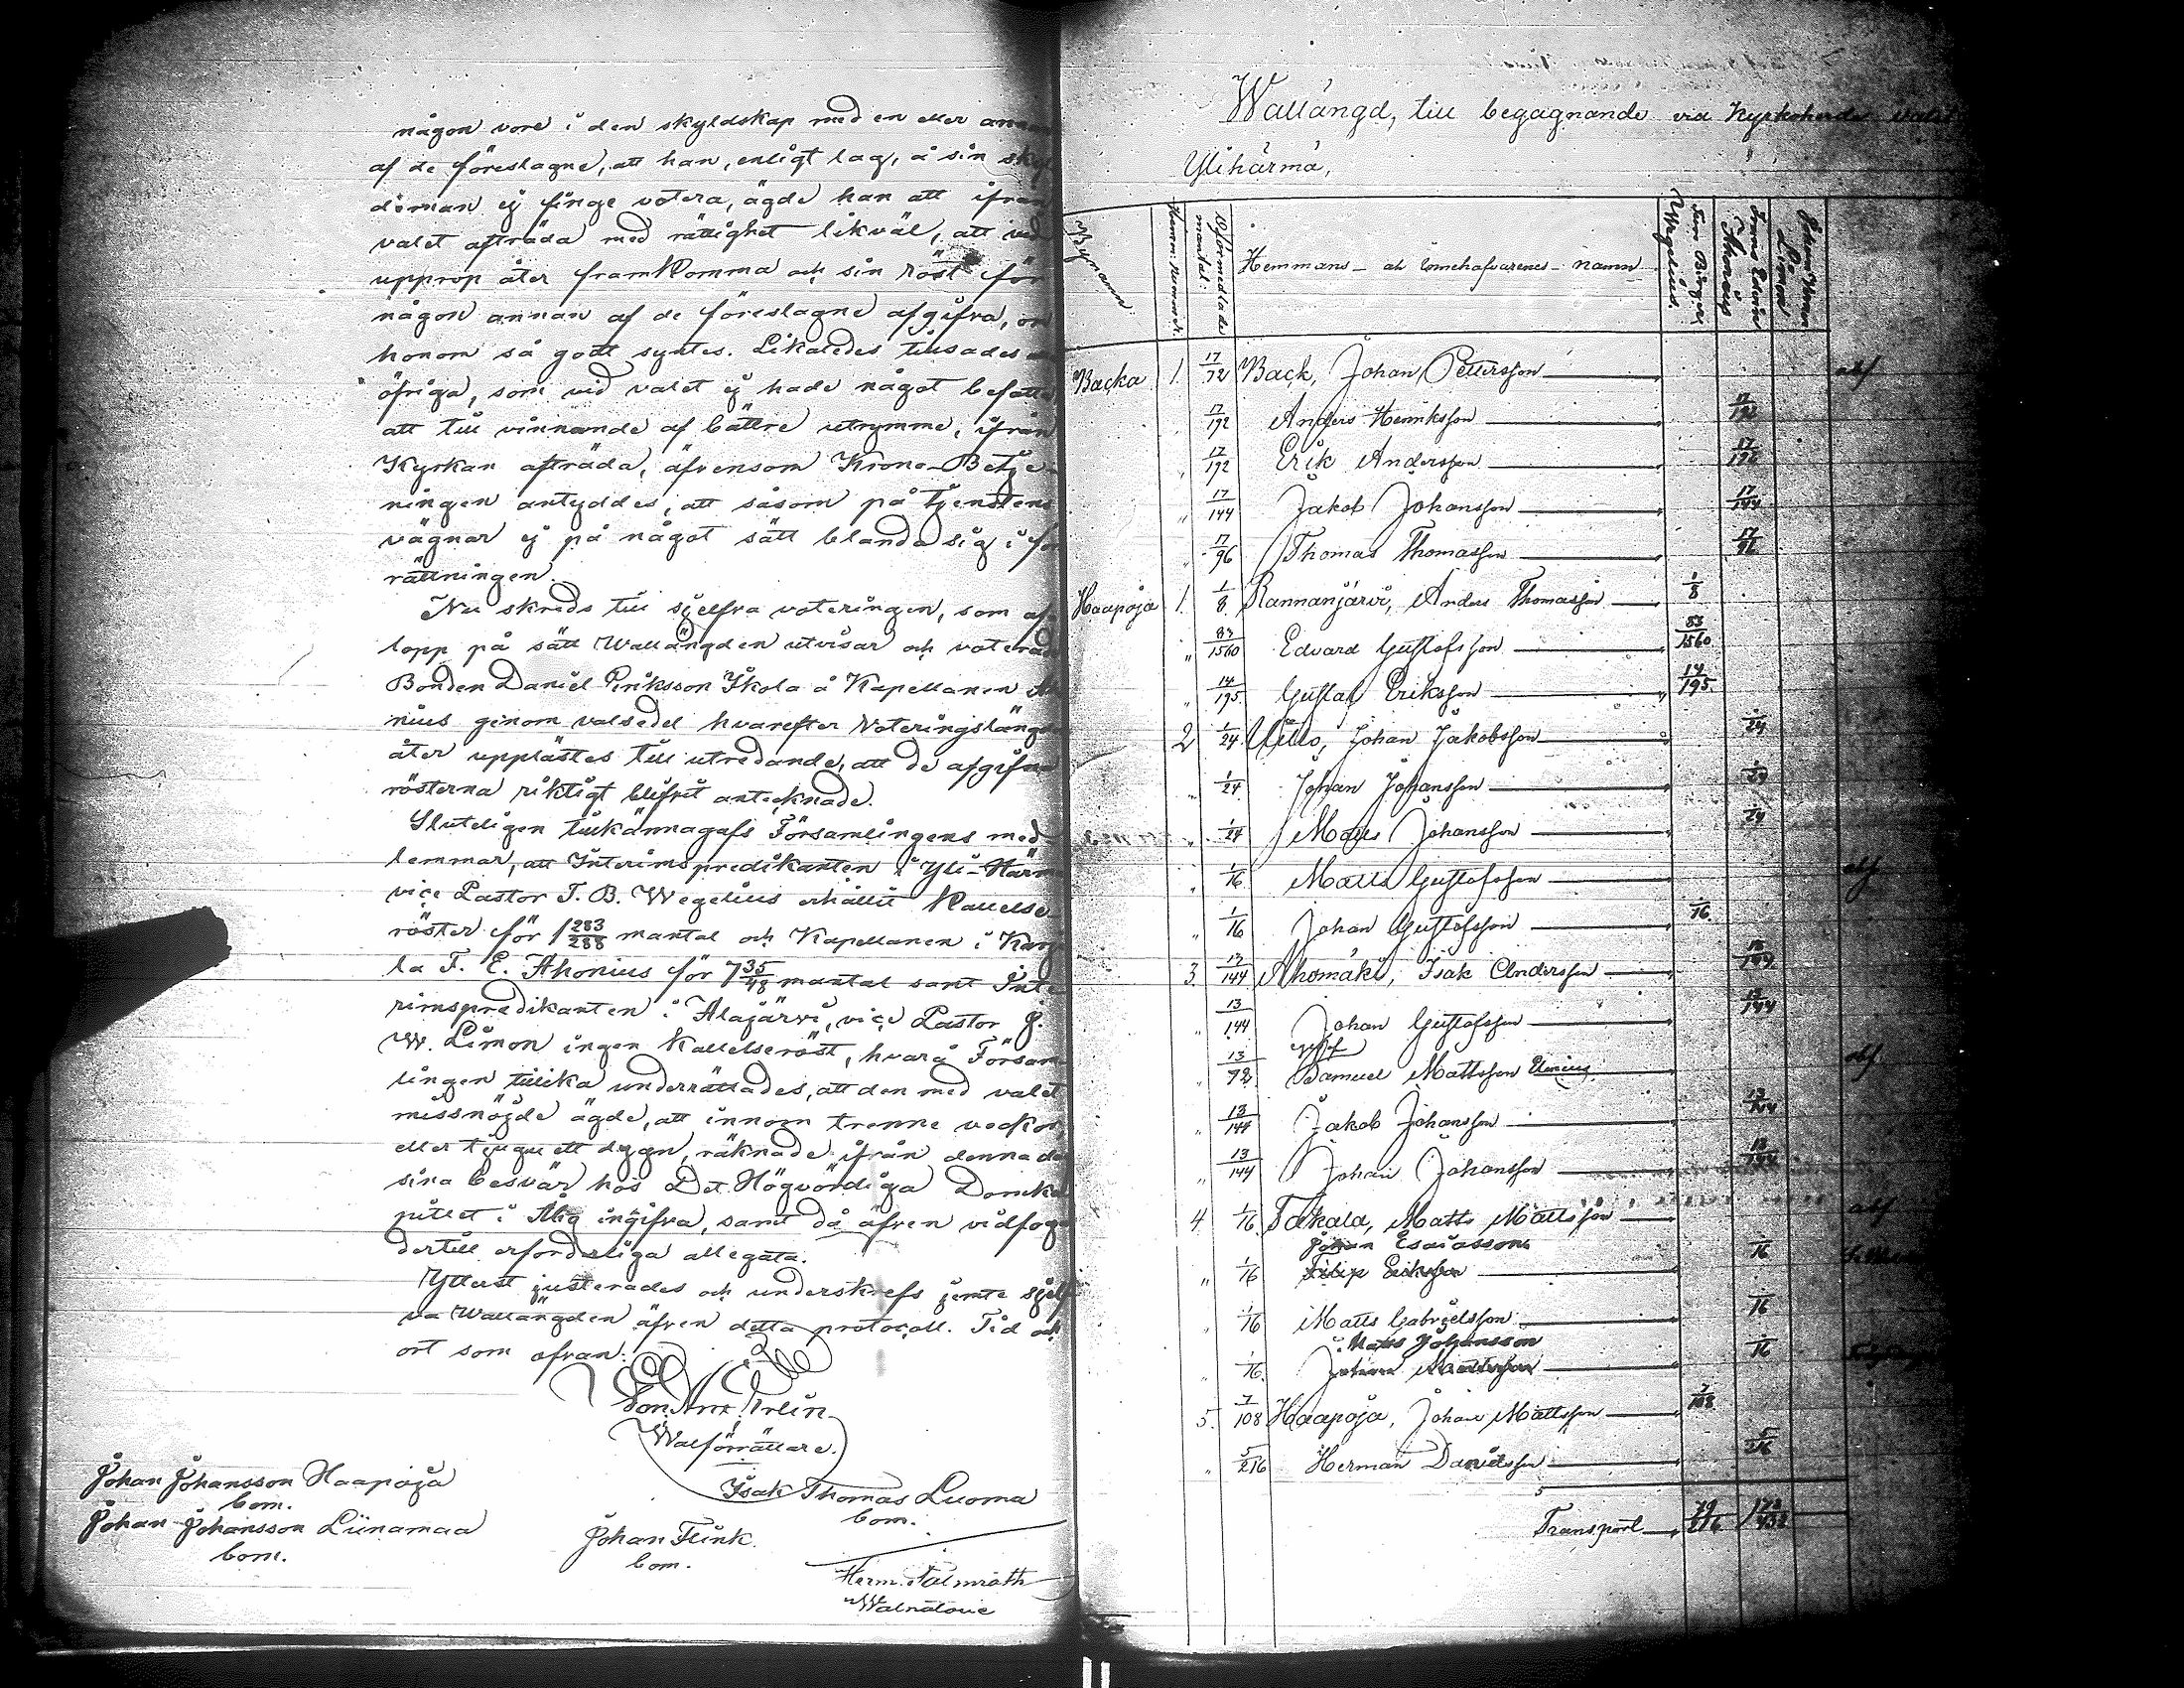 någon vore i den skyldskap med en eller annan
af de föreslagne, att han, enligt lag, å sin skyl
deman ej finge votera, ägde han att ifrån
valet afträda med rättighet likväl, att vid
upprop åter framkomma och sin röst för
någon annan af de föreslagne afgifva, om
honom så godt syntes. Likaledes tillsades
öfriga, som vid valet ej hade något befatta
att till vinnande af bättre utrymme, ifrån
Kyrkan afträda, äfvensom Krono-Betje-
ningen antyddes, att såsom på tjenstens
vägnar ej på något sätt blanda sig i för
rättningen.
Nu skreds till sjelfva voteringen, som af-
lopp på sätt Wallängden utvisar och voterade
Bonden Daniel Eriksson Ikola å Kapellanen Aho
nius genom valsedel hvarefter Voteringslängden
åter upplästes till utredande, att de afgifna
rösterna riktigt blifvit antecknade.
Sluteligen tillkännagafs Församlingens med-
lemmar, att Interimspredikanten i Yli-Härmä
vice Pastor T. B. Wegelius erhållit Kallelse-
röster för 1 283/288 mantal och Kapellanen i Karj
la F. E. Ahonius för 7 35/48 mantal samt Inte
rimspredikanten i Alajärvi, vice Pastor J.
W. Limon ingen Kallelseröst, hvarå Försam
lingen tillika underrättades, att den med valet
missnöjde ägde, att innom trenne veckor
eller tjuguett dygn, räknade ifrån denna dag
sina besvär hos Det Högvördiga Domka
pitlet i Åbo ingifva, samt då äfven vidfoga
dertill erforderliga allegata.
Ytterst justerades och underskrefs jemte sjelf
va Wallängden äfven detta protocoll. Tid och
ort som ofvan.
Walförrättare.
Johan Johansson Haapoja
bom.
Isak Thomas Luoma
bom.
Johan Johansson Liinamaa
bom.
Johan Flink
bom.
Herm. Malmrath
Wallängd, till begagnande vid Kyrkoherde valet
Ylihärmä,
Bynamn Hemmans Nummer Oförmedlade mantal. Hemmans- och Innehafvarenes namn Ture Birger Wegelius. Frans Edvin Ahonius Johan Werner Limon
Backa 1. 17/72 Back, Johan Pettersson abs
" 17/192 Anders Henriksson 17/192
" 17/192 Erik Andersson 17/192
" 17/144 Jakob Johansson 17/144
" 17/96 Thomas Thomasson 17/96
Haapoja 1. 1/8 Rannanjärvi, Anders Thomasson 1/8
" 83/1560 Edvard Gustafsson 83/1560
" 14/195 Gustaf Eriksson 14/195
2 1/24 Ullo, Johan Jakobsson 1/24
" 1/24 Johan Johansson 1/24
" 1/24 Matts Johansson 1/24
" 1/16 Matts Gustafsson abs
" 1/16 Johan Gustafsson 1/16
3. 13/144 Ahomäki, Isak Andersson 13/144
" 13/144 Johan Gustafsson 13/144
" 13/72 Samuel Mattsson abs
" 13/144 Jakob Johansson 13/144
" 13/144 Johan Johansson 13/144
4 1/16 Takala, Matts Mattsson abs
Johan Esaiasson
" 1/16 Filip Eriksson 1/16
" 1/16 Matts Gabrielsson 1/16
Matts Johansson
" 1/16 Johan Mattsson 1/16
5. 7/108 Haapoja, Johan Mattsson 7/108
" 5/216 Herman Danielsson 5/216
Transport 79/216